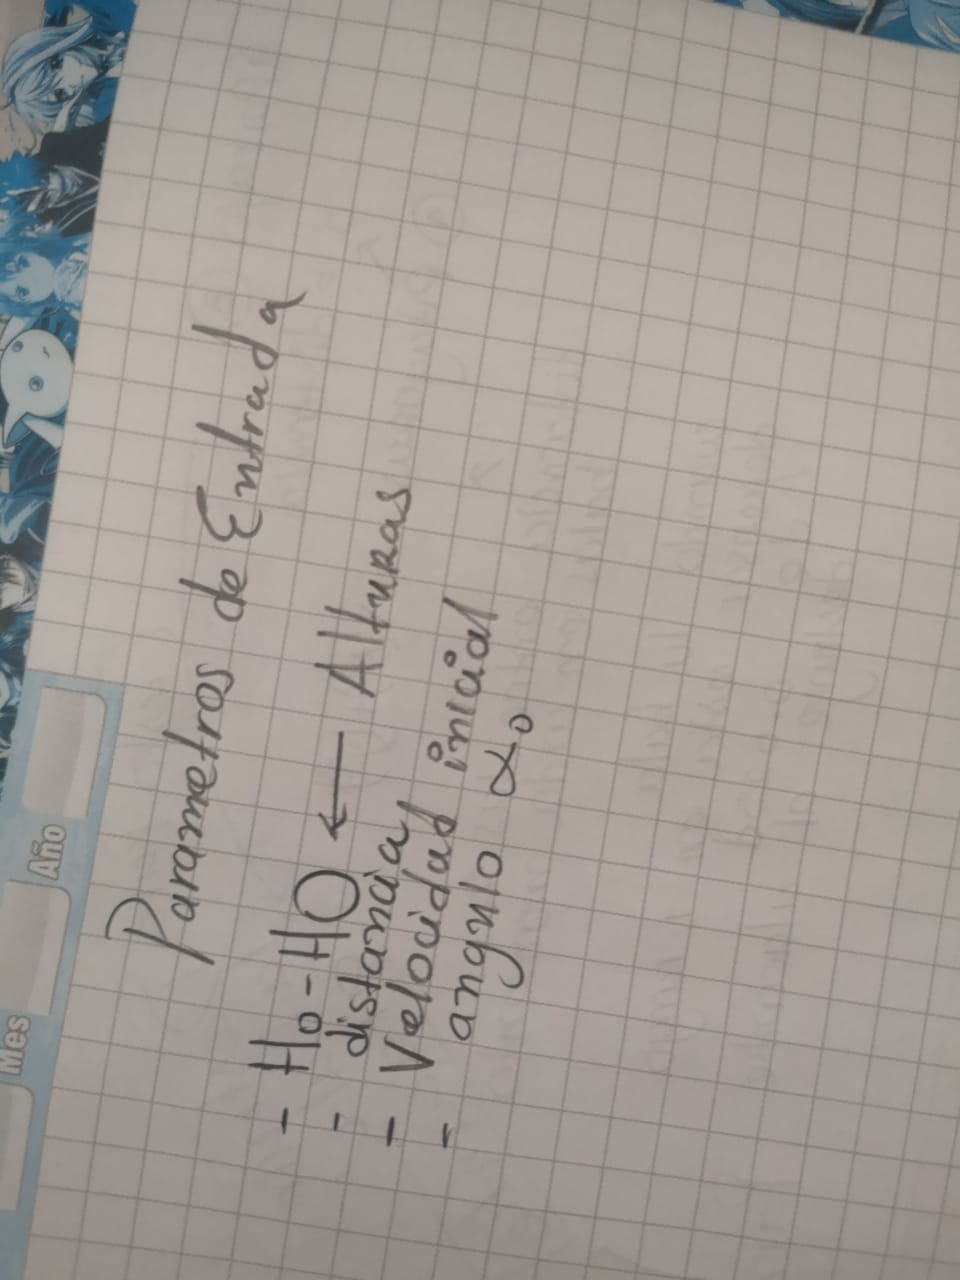 Mes Año
Parametros de Entrada
- Ho - HO ← Alturas
- distancia
- Velocidad inicial
- angulo α₀